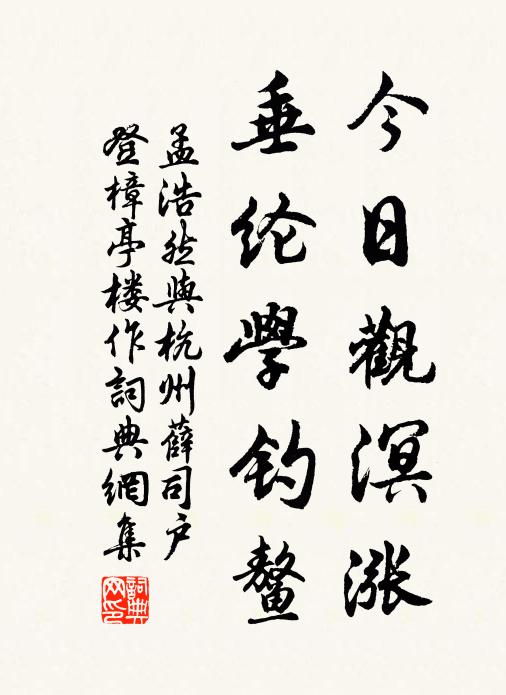 今日觀溟漲
垂纶學钓鳌
孟浩然與杭州薛司户
登樟亭楼作詞典網集
詞典网印